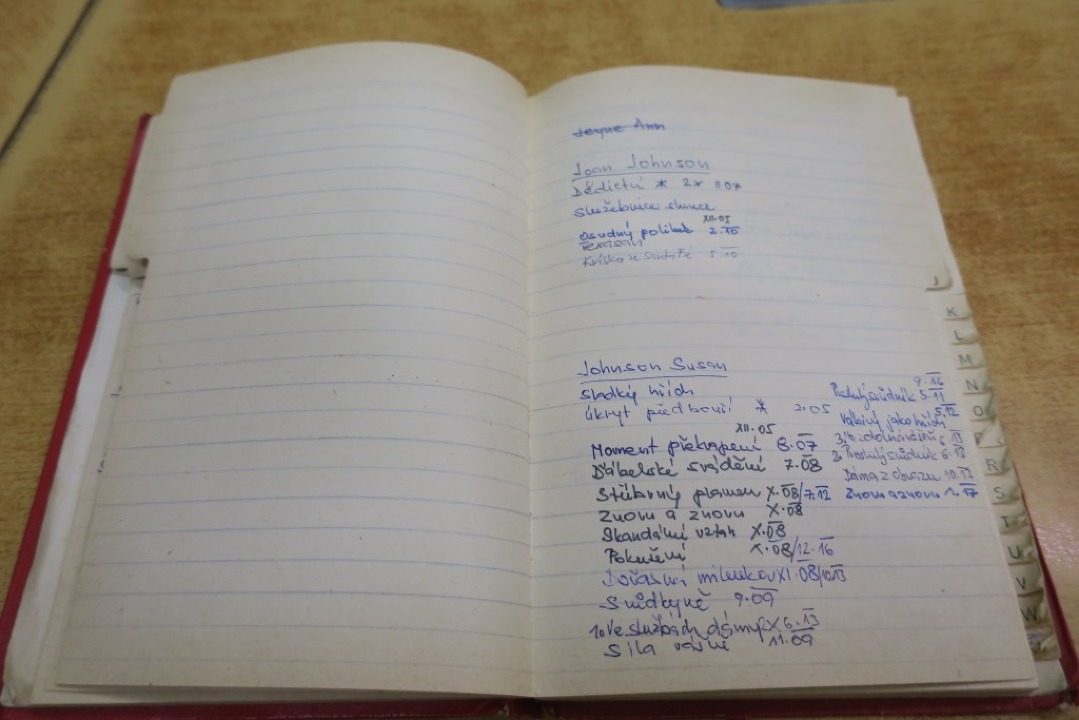 Jeyne Ann
Joan Johnson
Dědictví * 2* II 07
služebnice slunce
XII.05
osudný polibek 2.10
Texasan
Kráska ze Santa Fé 5.10
Johnson Susan
sladký hřích
úkryt před bouří * 2.05
XII.05
Moment překvapení 8.07
Ďábelské svádění 7.08
Stříbrný plamen X.08/7.12
Znovu a znovu X.08
Skandální vztah X.08
Pokušení X.08/12.16
Dočasná milenkou XI.08/10.13
Svůdkyně 9.09
1. Ve službách dámy 2X 6.13
Síla vášně 11.09
9.16
Proslulý svůdník 5.11
5.12
Vábivý jako hřích
3. 6.13
2. Proslulý svůdník 6.13
Dáma z obrazu 10.13
Znovu a znovu 1.17
J
K
L
M
N
O
P
R
S
T
U
V
W